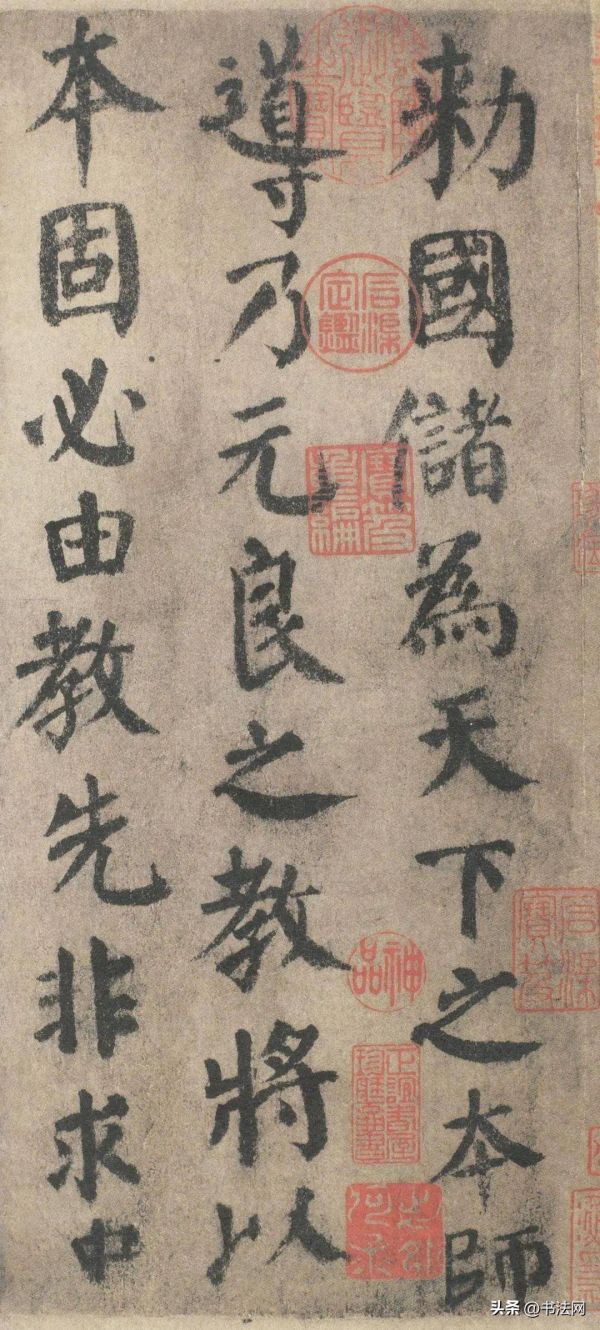 勅國儲為天下之本師
導乃元良之教將以
本固必由教先非求中
神品
头条 @书法网